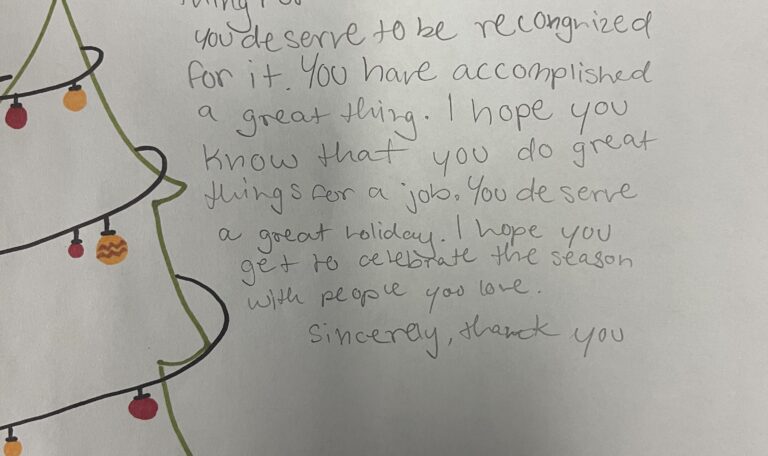 you deserve to be recongnized
for it. You have accomplished
a great thing. I hope you
know that you do great
things for a job. You deserve
a great holiday. I hope you
get to celebrate the season
with people you love.
Sincerely, thank you